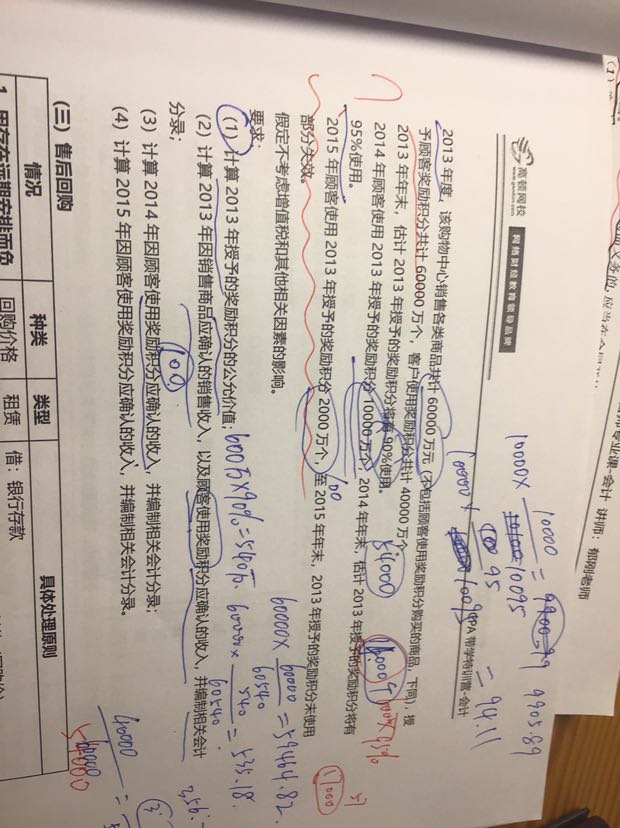 高顿网校
www.gaodun.com
网络财经教育领导品牌
CPA 带学特训营-会计
专业课-会计 讲师：郁刚老师
2013 年度，该购物中心销售各类商品共计 60000 万元（不包括顾客使用奖励积分购买的商品，下同），授
予顾客奖励积分共计 60000 万个，客户使用奖励积分共计 40000 万个。
2013 年年末，估计 2013 年授予的奖励积分将有 90%使用。
2014 年顾客使用 2013 年授予的奖励积分 10000 万个，2014 年年末，估计 2013 年授予的奖励积分将有
95%使用。
2015 年顾客使用 2013 年授予的奖励积分 2000 万个，至 2015 年年末，2013 年授予的奖励积分未使用
部分失效。
假定不考虑增值税和其他相关因素的影响。
要求：
（1）计算 2013 年授予的奖励积分的公允价值；
（2）计算 2013 年因销售商品应确认的销售收入，以及顾客使用奖励积分应确认的收入，并编制相关会计
分录；
（3）计算 2014 年因顾客使用奖励积分应确认的收入，并编制相关会计分录；
（4）计算 2015 年因顾客使用奖励积分应确认的收入，并编制相关会计分录。
10000× 10000
10095
= 9905.89
= 94.11
54000
100
100
600万×90%=540万
60000× 60000
60540
=59464.82
60000× 540
60540
=535.18
40000
54000
（三）售后回购
情况
种类
类型
具体处理原则
1.
回购价格
租赁
借：银行存款